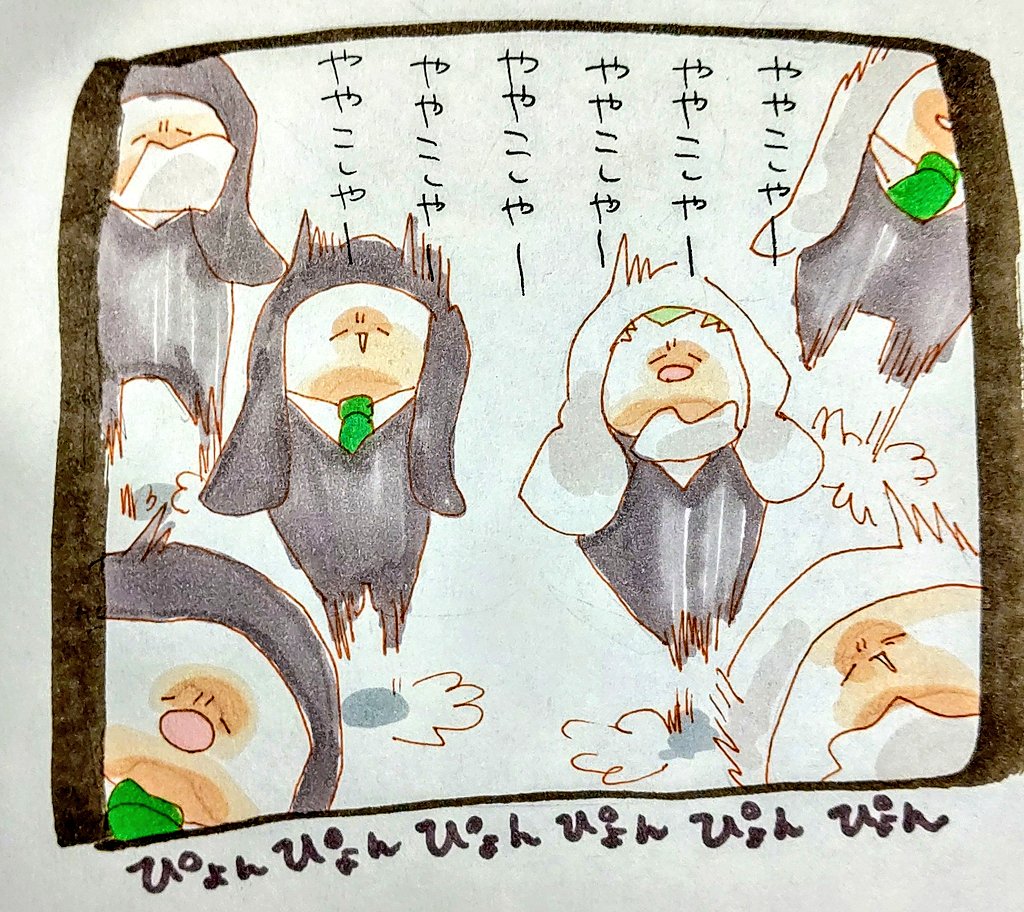 ややこしやー
ややこしやー
ややこしやー
ややこしやー
ややこしやー
ややこしやー
ぴょん ぴょん ぴょん ぴょん ぴょん ぴょん